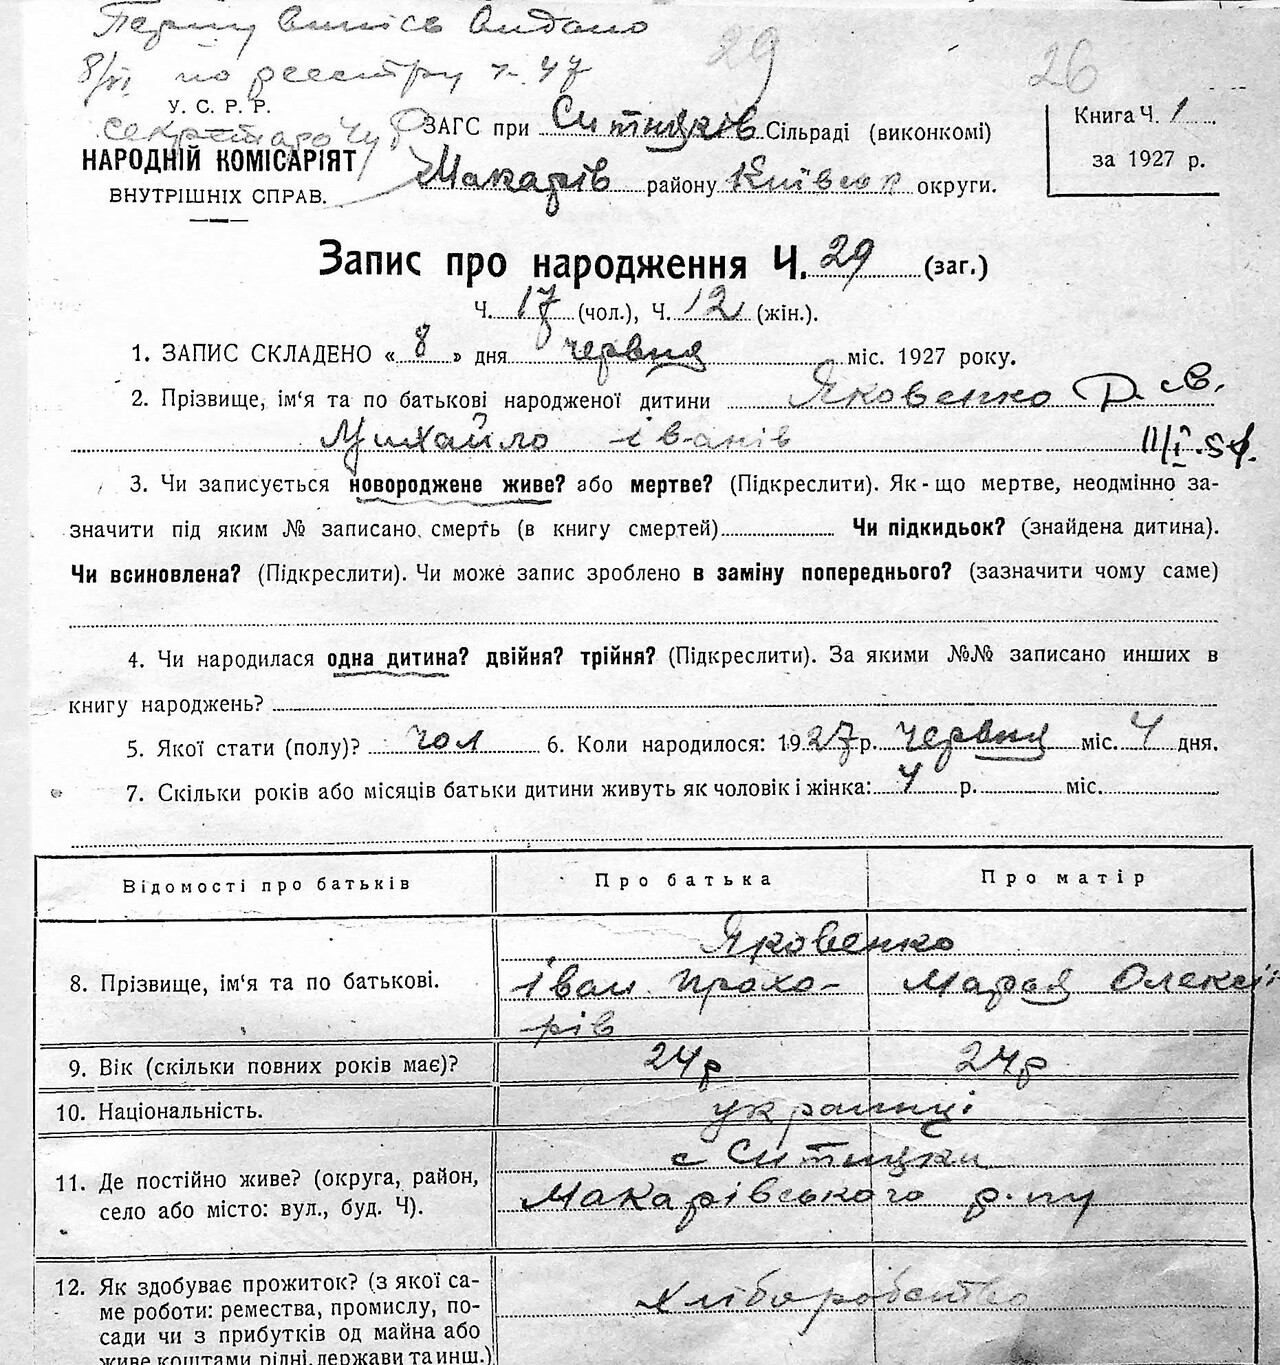 Першу выпісь видано
29
26
8/VI по реестру № 47
У. С. Р. Р.
НАРОДНІЙ КОМІСАРІЯТ
ВНУТРІШНІХ СПРАВ.
ЗАГС при Ситняків Сільраді (виконкомі)
Макарів району Київськ округи.
Книга Ч. 1
за 1927 р.
Запис про народження Ч. 29 (заг.)
Ч. 17 (чол.), Ч. 12 (жін.).
1. ЗАПИС СКЛАДЕНО « 8 » дня червня міс. 1927 року.
2. Прізвище, ім'я та по батькові народженої дитини Яковенко
Михайло іванів
3. Чи записується новороджене живе? або мертве? (Підкреслити). Як-що мертве, неодмінно за-
значити під яким № записано смерть (в книгу смертей) Чи підкидьок? (знайдена дитина).
Чи всиновлена? (Підкреслити). Чи може запис зроблено в заміну попереднього? (зазначити чому саме)
4. Чи народилася одна дитина? двійня? трійня? (Підкреслити). За якими №№ записано инших в
книгу народжень?
5. Якої стати (полу)? чол 6. Коли народилося: 1927 р. червня міс. 4 дня.
7. Скільки років або місяців батьки дитини живуть як чоловік і жінка: 4 р. міс.
Відомості про батьків Про батька Про матір
Яковенко
8. Прізвище, ім'я та по батькові. іван Прохо- Марія Олексії
рів
9. Вік (скільки повних років має)? 24р 24р
10. Національність. українці
с Ситняки
11. Де постійно живе? (округа, район,
село або місто: вул., буд. Ч). Макарівського р-ну
12. Як здобуває прожиток? (з якої са- хліборобство
ме роботи: ремества, промислу, по-
сади чи з прибутків од майна або
живе коштами рідні, держави та инш.)